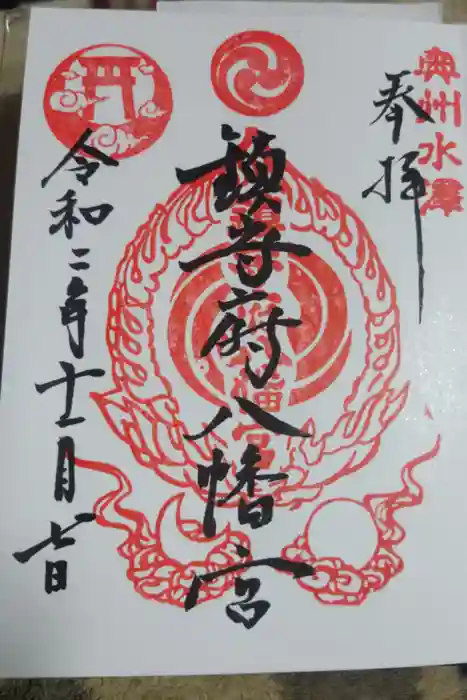 奥州水澤
奉拝
鎮守府八幡宮
令和二年十一月七日